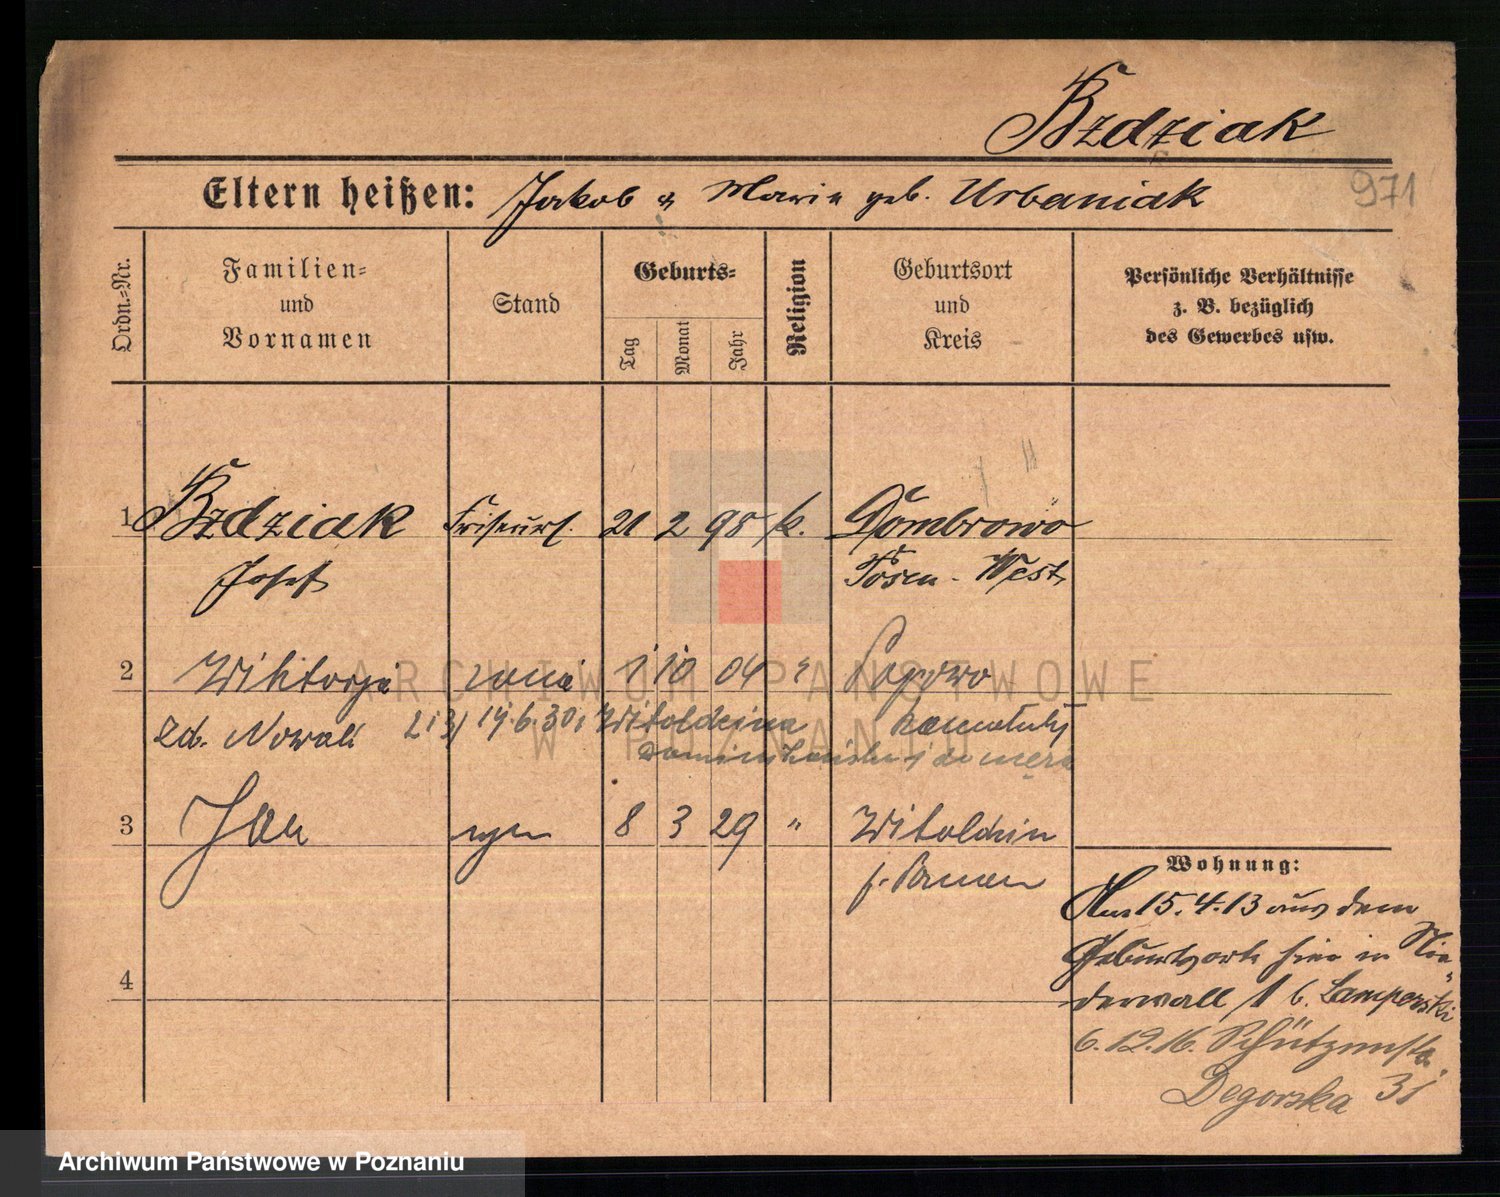 Bzdziak
Eltern heißen: Jakob & Maria geb. Urbaniak
971
Ordn.=Nr.
Familien=
und
Vornamen
Stand
Geburts=
Tag
Monat
Jahr
Religion
Geburtsort
und
Kreis
Persönliche Verhältnisse
z. B. bezüglich
des Gewerbes usw.
1 Bzdziak Friseurl. 21 2 98 k. Dombrowo
Josef Posen-West
2 Wiktorja żona 1 10 04 "
ARCHIWUM PAŃSTWOWE
W POZNANIU
zd. Nowak 2 i 3) 14.6.30 Szamotuły
3 Jan syn 8 3 29 "
Wohnung:
Am 15.4.13 aus dem
Geburtsorte hier in Nie=
derwall 1 b. Lamperski
6.12.16. Schützenstr.
Degorska 31
4
Archiwum Państwowe w Poznaniu